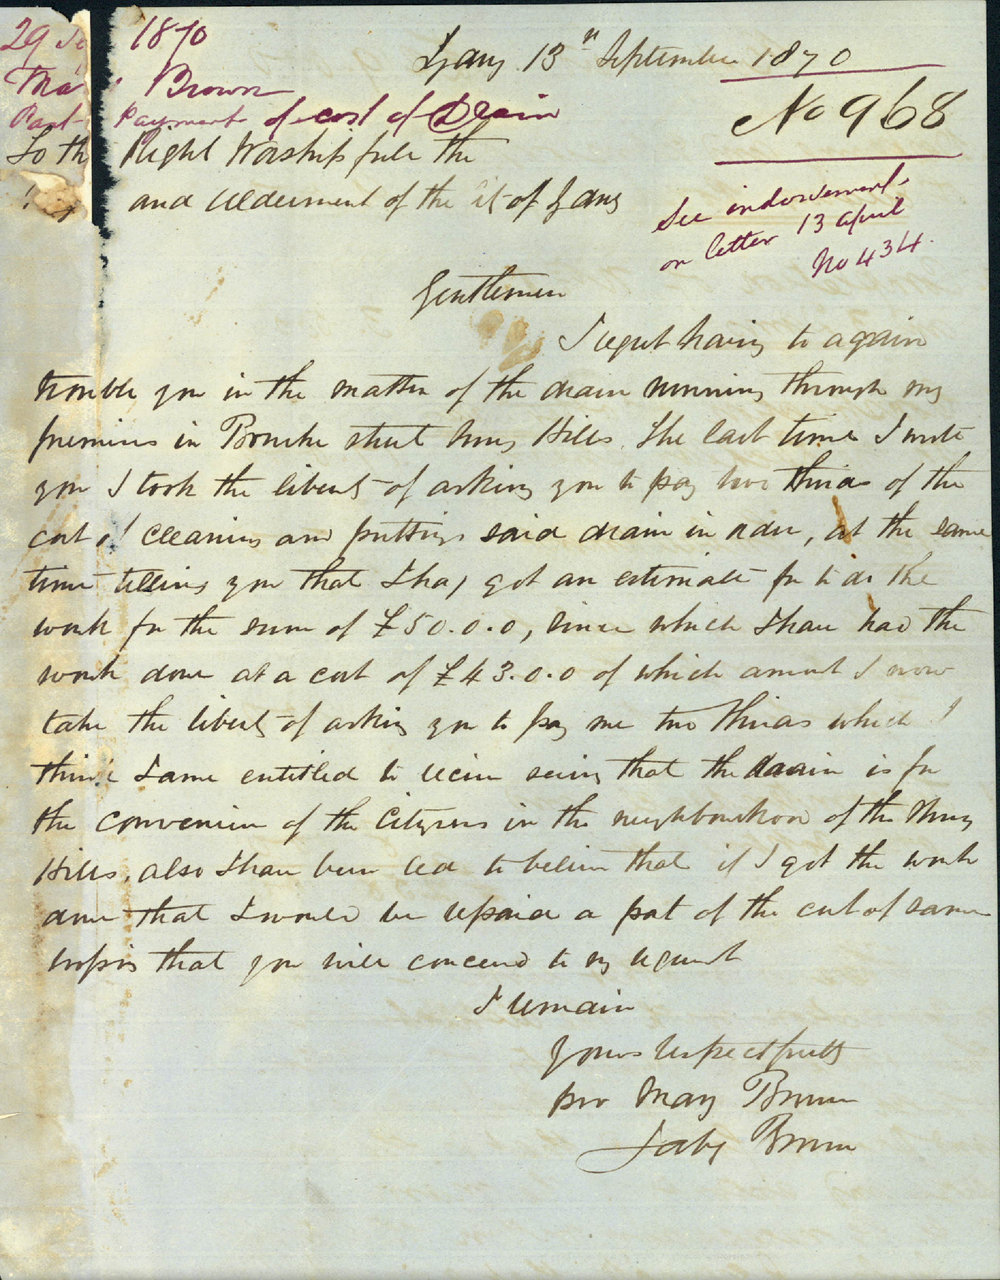 29 Sep 1870
Mary Brown
Part Payment of cost of Drain
Sydney 13th September 1870
No 968
See indorsement
on letter 13 april
No 434
To the Right Worshipfull the
and Alderment of the City of Sydney
Gentlemen
I regret having to again
trouble you in the matter of the drain running through my
premises in Bourke street Surry Hills. The last time I wrote
you I took the liberty of asking you to pay two thirds of the
cost of cleaning and putting said drain in order, at the same
time telling you that I had got an estimate for to do the
work for the sum of £50.0.0, since which I have had the
work done at a cost of £43.0.0 of which amount I now
take the liberty of asking you to pay me two thirds which I
think I ame entitled to receive seeing that the drain is for
the convenience of the Citizens in the neighbourhood of the Surry
Hills, also I have been led to believe that if I got the work
done that I would be repaid a part of the cost of same
hopeing that you will conceed to my request
I remain
Yours respectfully
pro Mary Brown
Brown